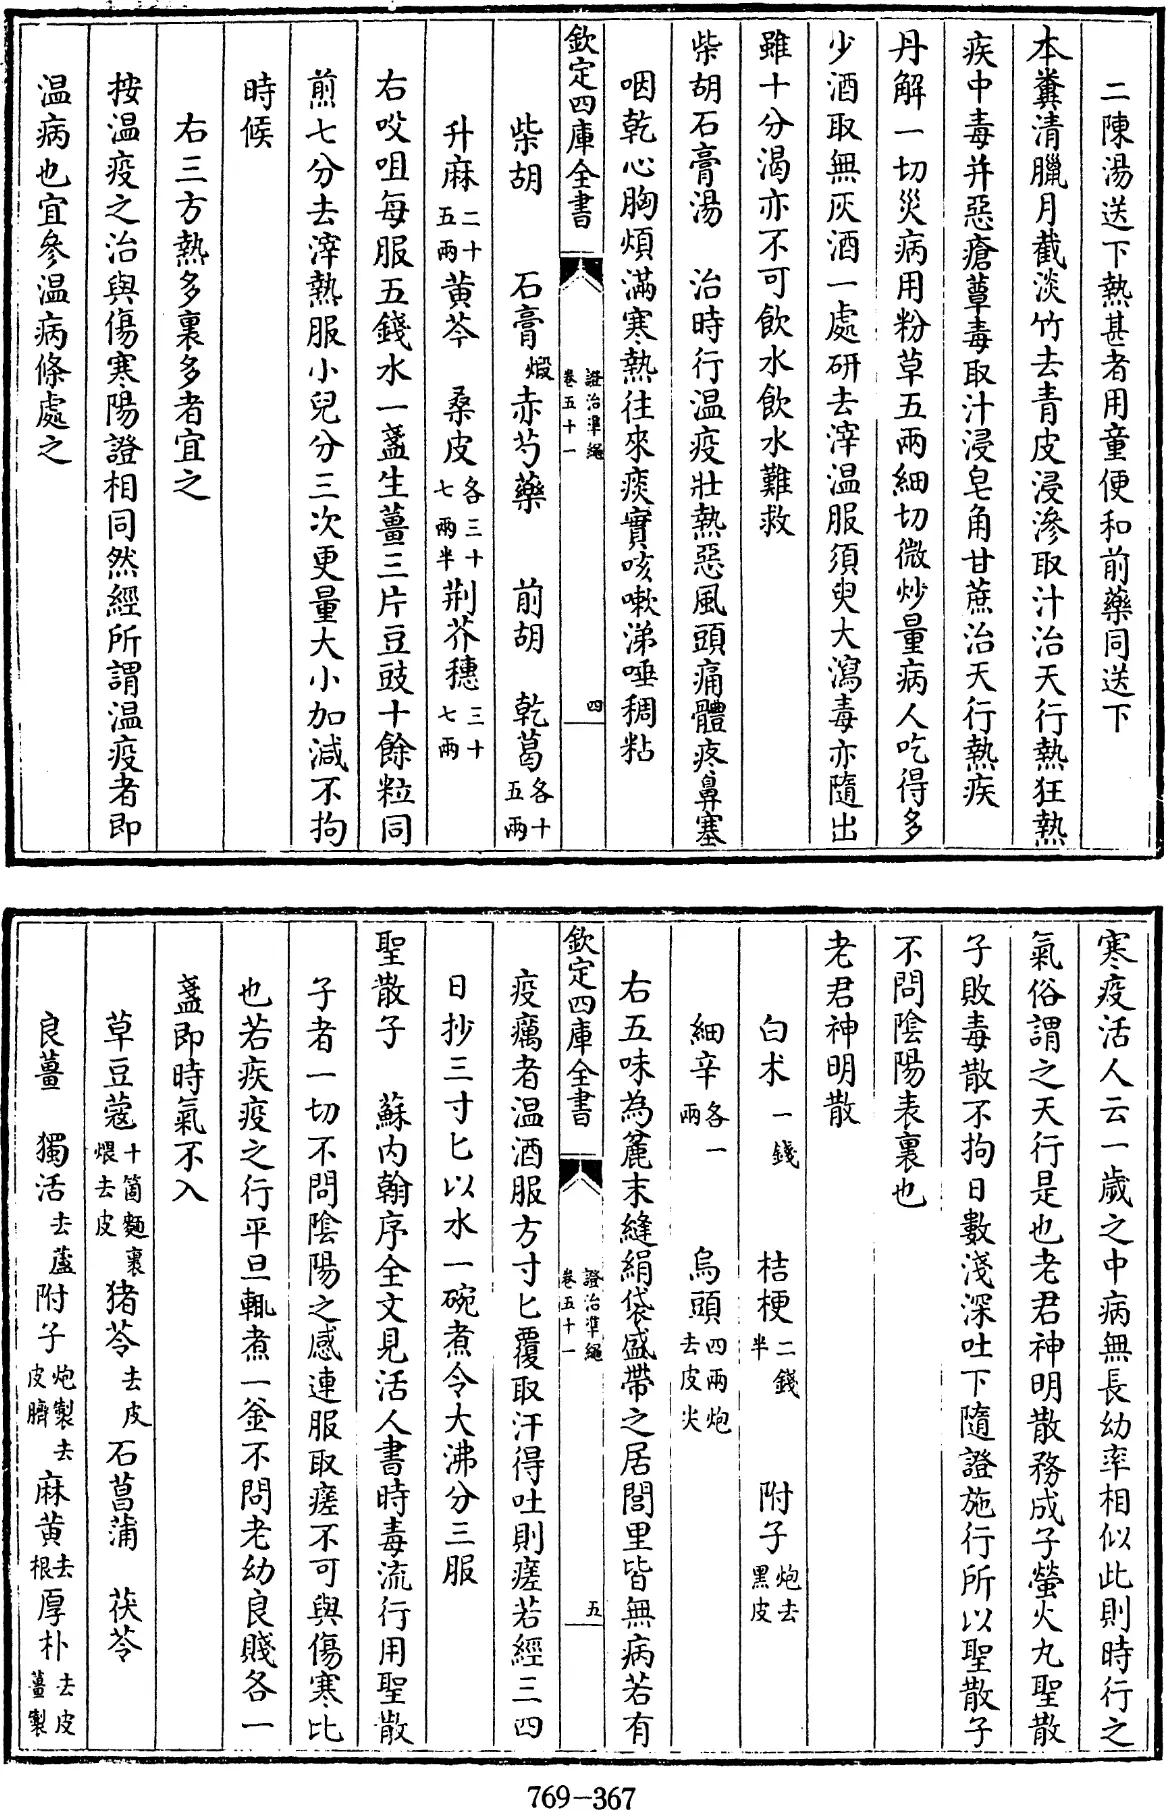 二陳湯送下熱甚者用童便和前藥同送下
本糞清臘月截淡竹去青皮浸滲取汁治天行熱狂熱
疾中毒并惡瘡蕈毒取汁浸皂角甘蔗治天行熱疾
丹解一切災病用粉草五兩細切微炒量病人吃得多
少酒取無灰酒一處研去滓温服須臾大瀉毒亦隨出
雖十分渴亦不可飲水飲水難救
柴胡石膏湯　治時行温疫壯熱惡風頭痛體疼鼻塞
咽乾心胸煩滿寒熱往來痰實咳嗽涕唾稠粘
欽定四庫全書　證治準繩卷五十一　四
柴胡　石膏煅　赤芍藥　前胡　乾葛各十五兩
升麻二十五兩　黄芩　桑皮各三十七兩半　荆芥穗三十七兩
右㕮咀每服五錢水一盞生薑三片豆豉十餘粒同
煎七分去滓熱服小兒分三次更量大小加減不拘
時候
右三方熱多裏多者宜之
按温疫之治與傷寒陽證相同然經所謂温疫者即
温病也宜參温病條處之
寒疫活人云一歲之中病無長幼率相似此則時行之
氣俗謂之天行是也老君神明散務成子螢火丸聖散
子敗毒散不拘日數淺深吐下隨證施行所以聖散子
不問陰陽表裏也
老君神明散
白术一錢　桔梗二錢半　附子炮去黑皮
細辛各一兩　烏頭四兩炮去皮尖
右五味為麄末縫絹袋盛帶之居閭里皆無病若有
欽定四庫全書　證治準繩卷五十一　五
疫癘者温酒服方寸匕覆取汗得吐則瘥若經三四
日抄三寸匕以水一碗煮令大沸分三服
聖散子　蘇内翰序全文見活人書時毒流行用聖散
子者一切不問陰陽之感連服取瘥不可與傷寒比
也若疾疫之行平旦輒煮一釜不問老幼良賤各一
盞即時氣不入
草豆蔻十箇麵裹煨去皮　猪苓去皮　石菖蒲　茯苓
良薑　獨活去蘆　附子炮製去皮臍　麻黄去根　厚朴去皮薑製
769-367